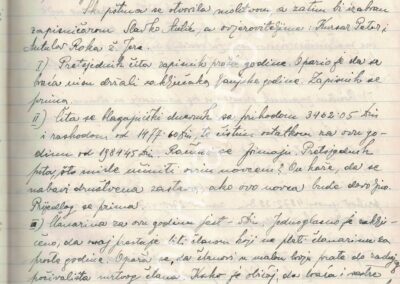 Skupština se otvorila molitvom a zatim bi izabran
zapisničarom Slavko Šulić, a ovjeroviteljima: Kursar Petar i
Antulov Roka ž. Jera.
I) Pretsjednik čita zapisnik prošle godine. Opaža je da se
nisu držali zaključaka lanjske godine. Zapisnik se
prima.
II) Čita se blagajnički dnevnik sa prihodom 3462.05 Din
i rashodom od 1477.60 din, te čistim ostatkom za ovu go-
dinu od 1984.45 din. Računi se primaju. Pretsjednik
pita što misle učiniti ovim novcem? On kaže, da se
nabavi društvena zastava ako ovo novca bude dovoljno.
Prijedlog se prima.
III) Članarina za ovu godinu jest - din. Jednoglasno je zaklju-
čeno, da onaj prestaje biti članom koji ne plati članarinu za
prošle godine. Opaža se, da članovi u malom broju prate do zadnjeg
počivališta mrtvog člana. Kako je običaj, da